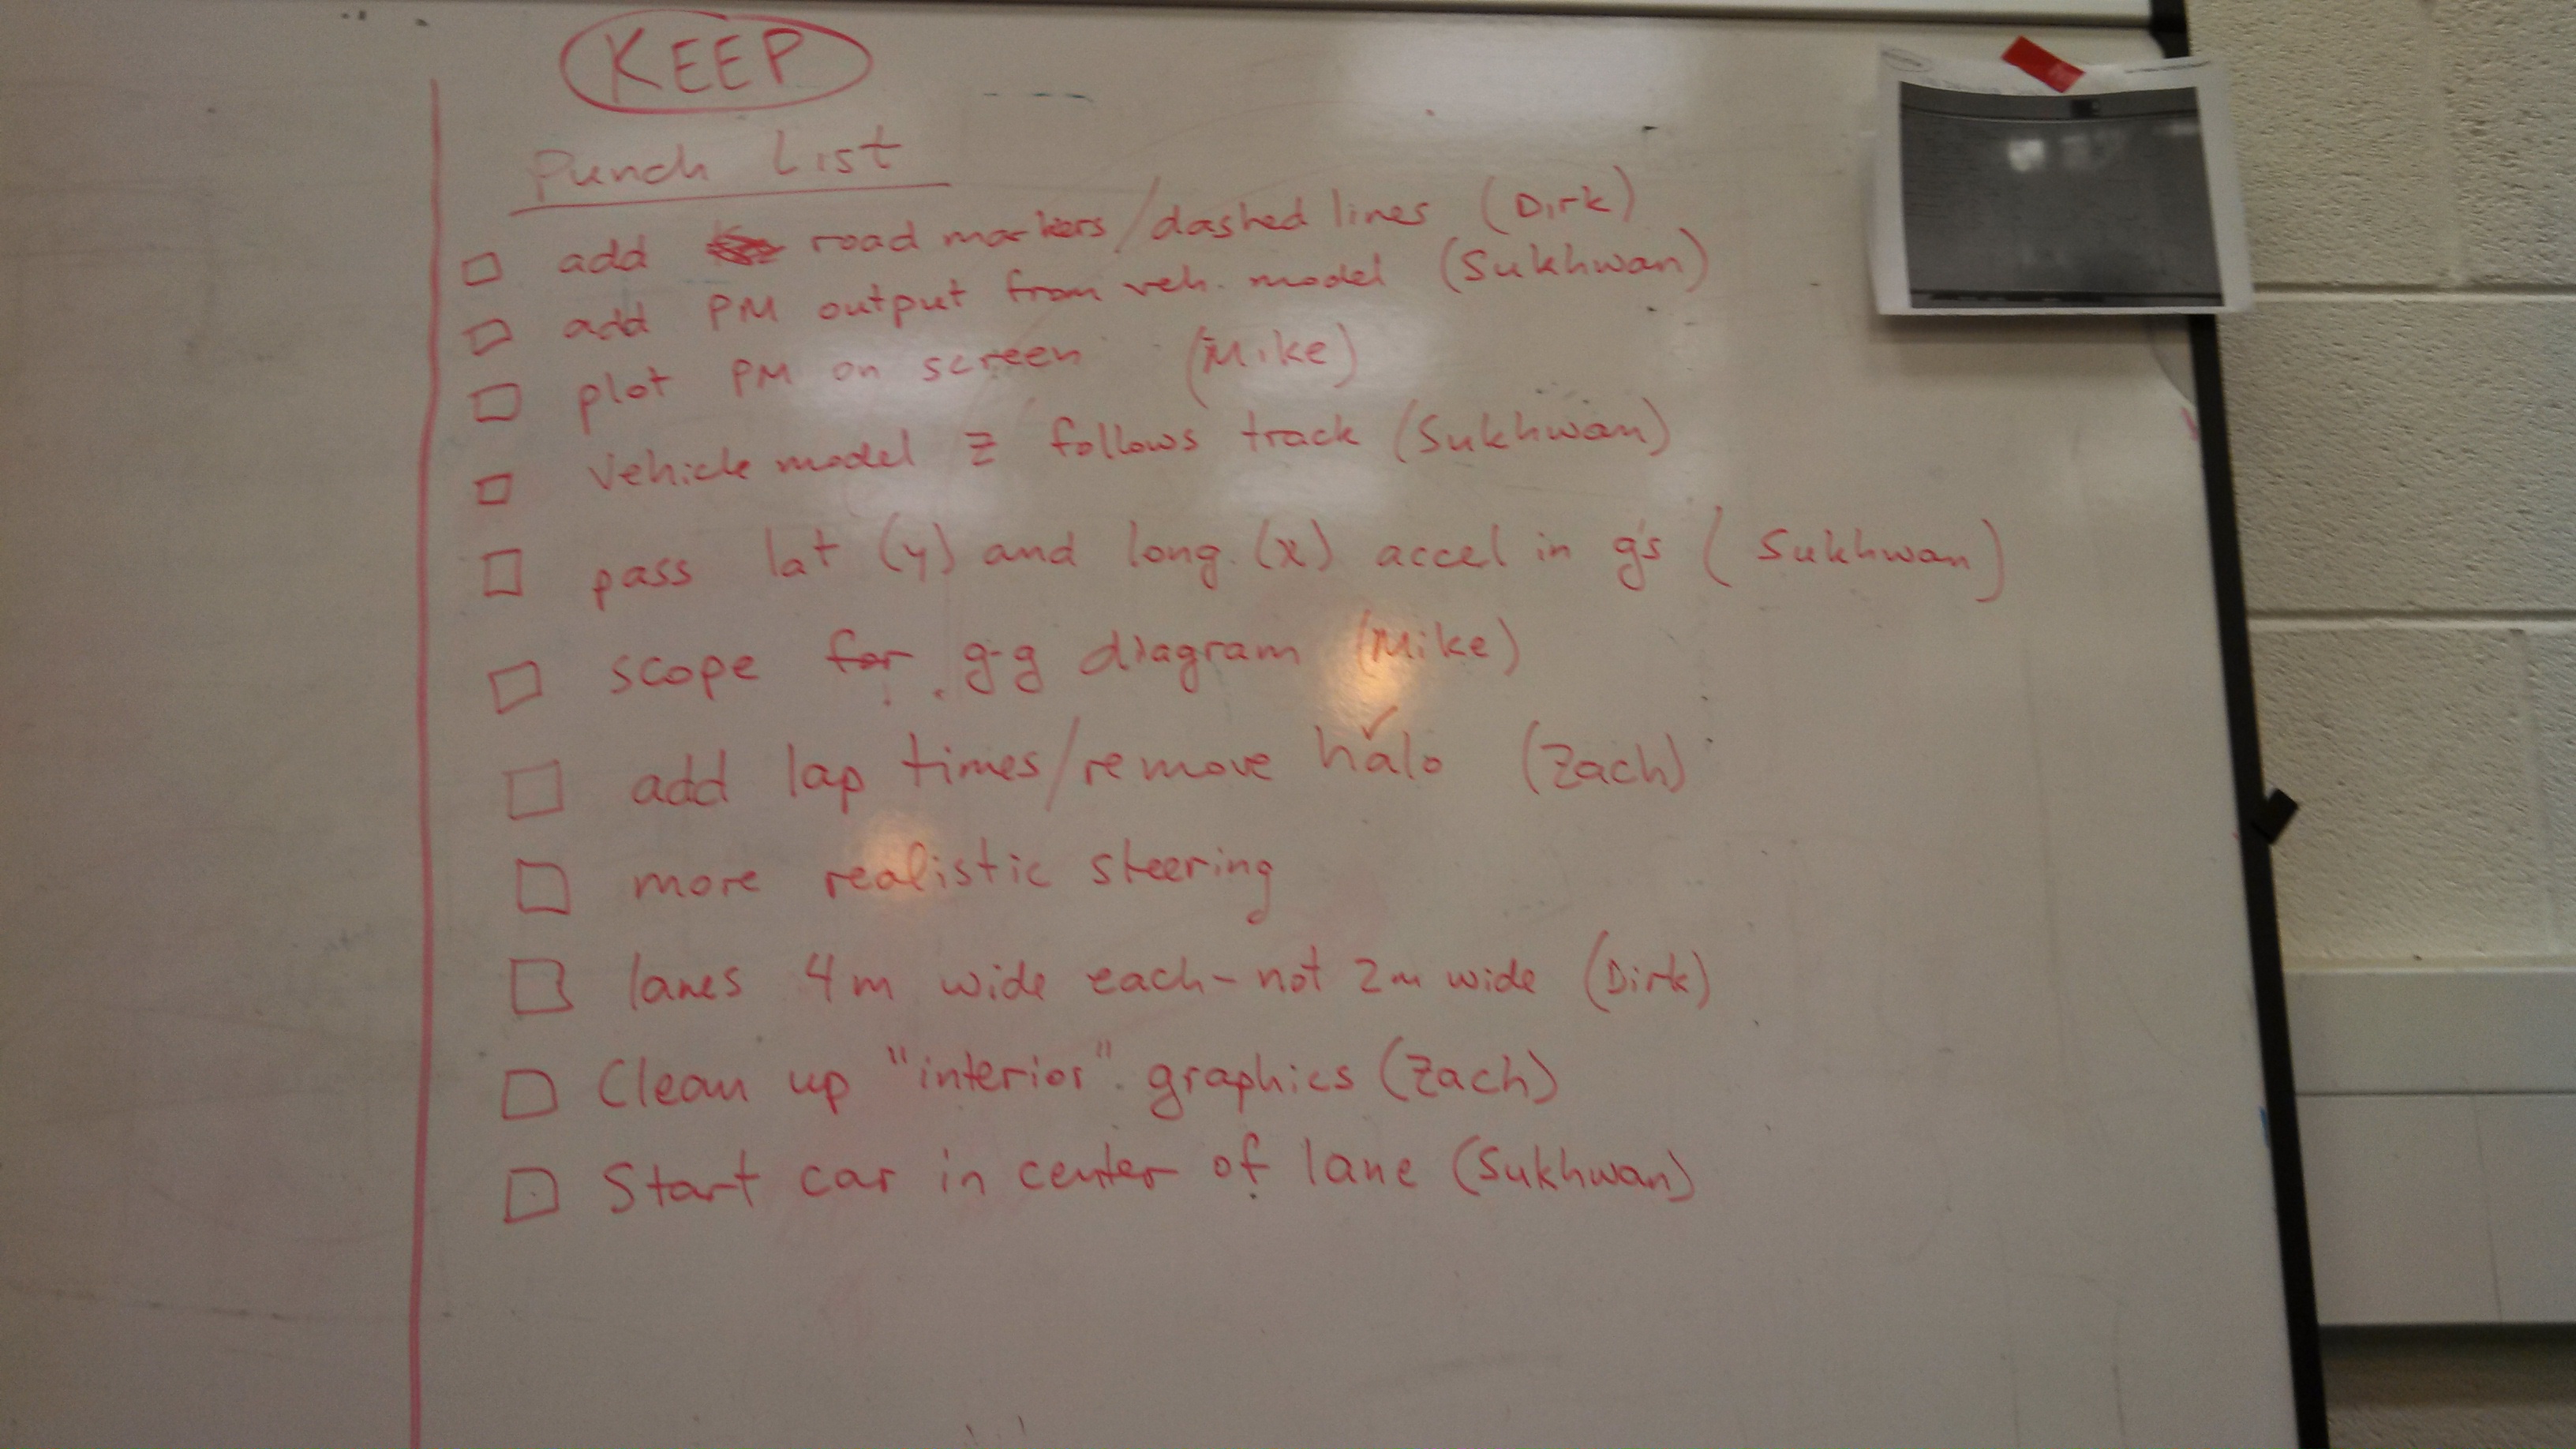 KEEP
Punch List
□ add road markers/dashed lines (Dirk)
□ add PM output from veh. model (Sukhwan)
□ plot PM on screen (Mike)
□ Vehicle model Z follows track (Sukhwan)
□ pass lat (y) and long. (x) accel in g's (Sukhwan)
□ scope for g-g diagram (Mike)
□ add lap times/remove halo ✓ (Zach)
□ more realistic steering
□ lanes 4m wide each - not 2m wide (Dirk)
□ Clean up "interior" graphics (Zach)
□ Start car in center of lane (Sukhwan)